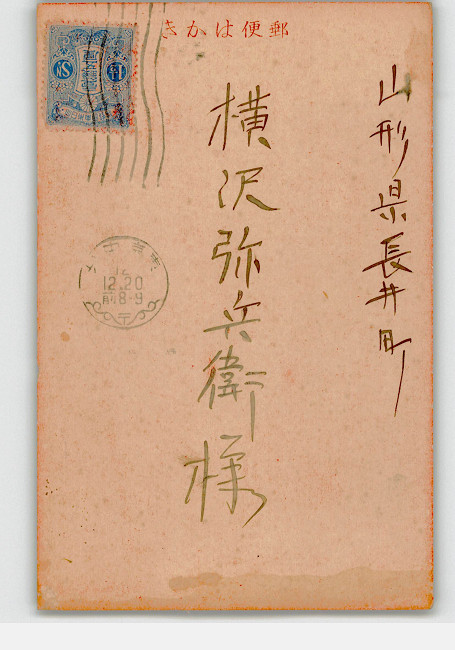 郵便はかき
山形県長井町
横沢弥兵衛様
12.20
前8-9